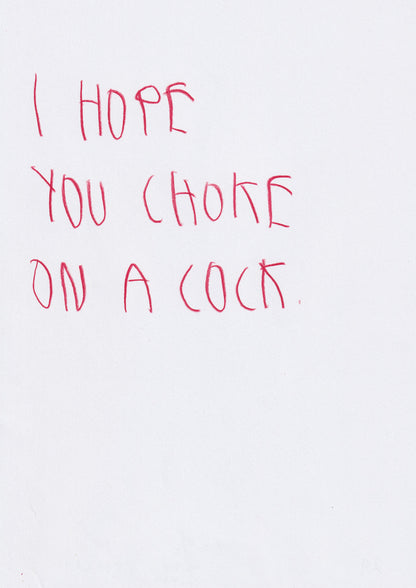 I HOPE
YOU CHOKE
ON A COCK.